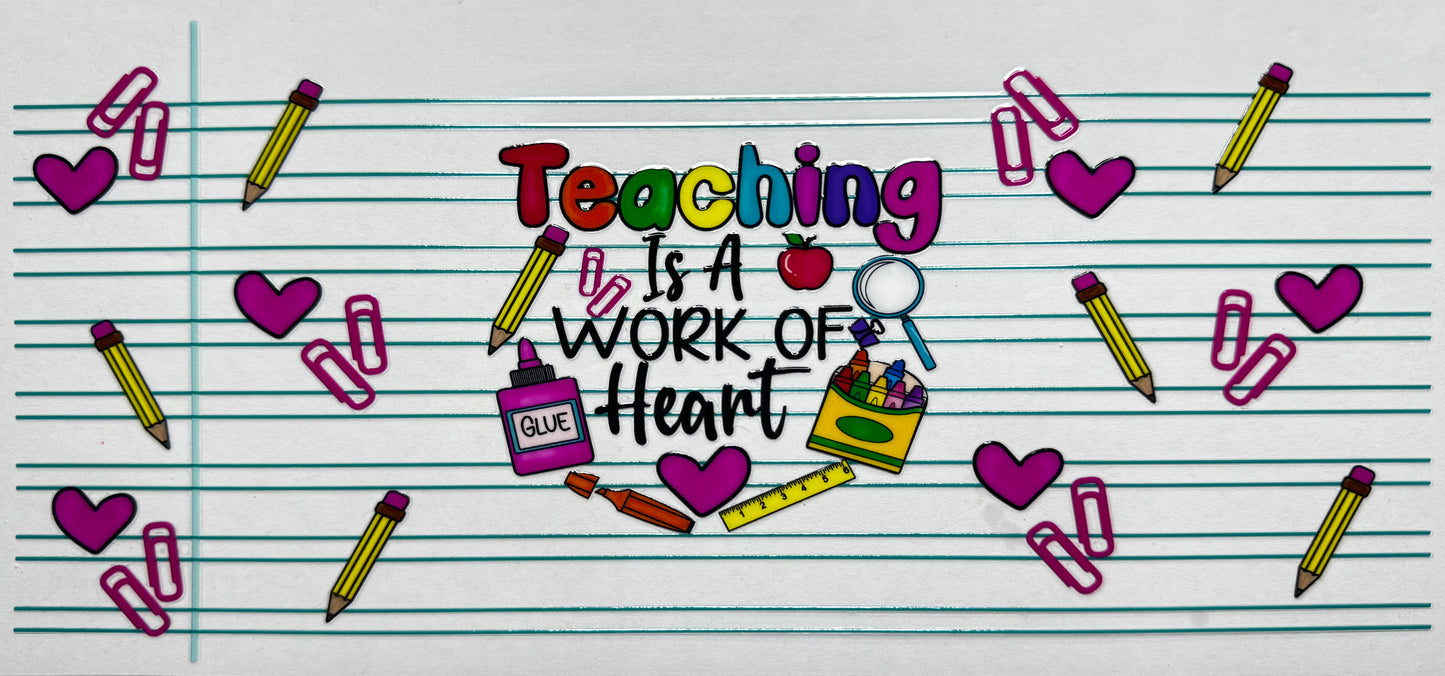 Teaching
Is A
WORK OF
Heart
GLUE
1 2 3 4 5 6